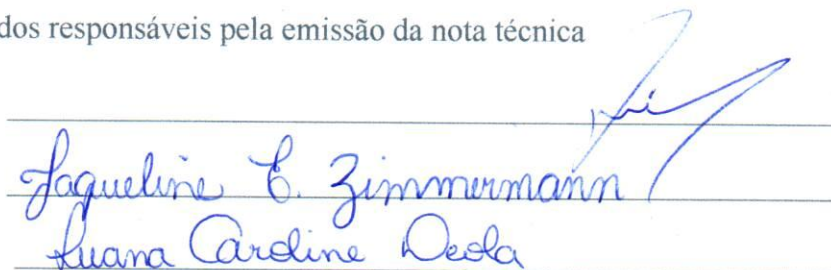 dos responsáveis pela emissão da nota técnica
Jaqueline C. Zimmermann
Luana Caroline Deola